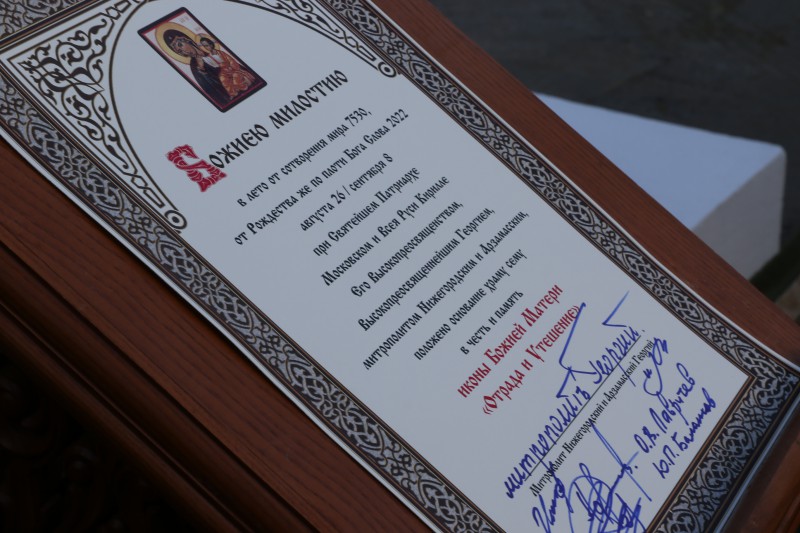 Божиею милостию
в лето от сотворения мира 7530,
от Рождества же по плоти Бога Слова 2022
августа 26 / сентября 8
при Святейшем Патриархе
Московском и Всея Руси Кирилле
Его Высокопреосвященством,
Высокопреосвященнейшим Георгием,
митрополитом Нижегородским и Арзамасским,
положено основание храму сему
в честь и память
иконы Божией Матери
«Отрада и Утешение»
митрополитъ Георгий.
Митрополит Нижегородский и Арзамасский Георгий
О.В. Лавричев
Ю.П. Балашов